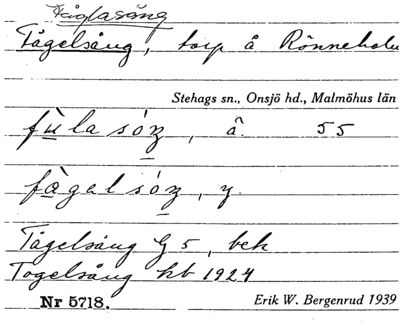 Fåglasång
Fågelsång, torp å Rönneholm
Stehags sn., Onsjö hd., Malmöhus län
fùla sóŋ, å. 55
fàgelsóŋ, y.
Fågelsång G 5, bek
Fogelsång kb 1924
Nr 5718. Erik W. Bergenrud 1939